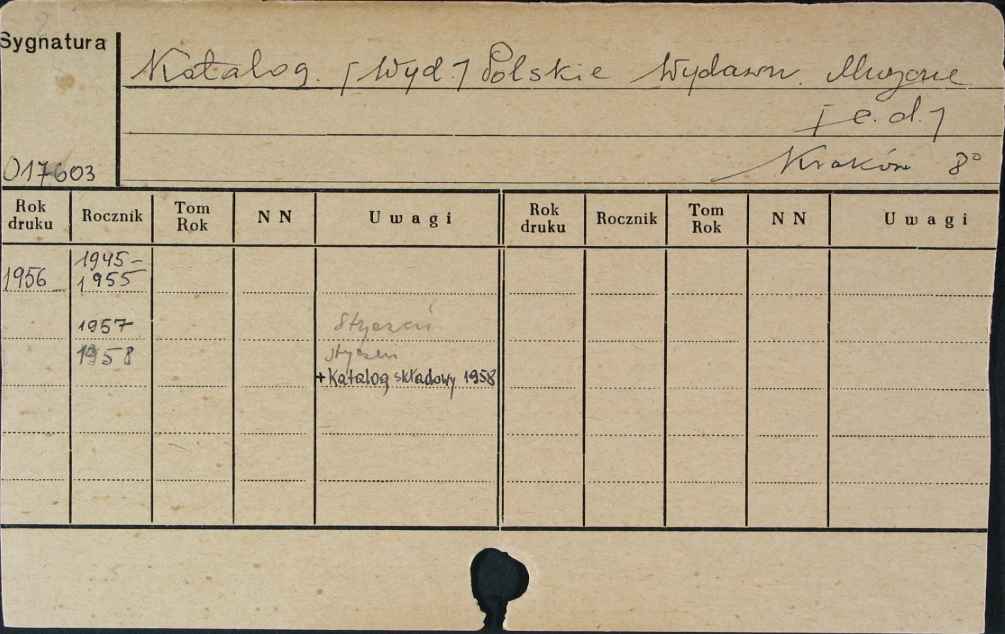 Sygnatura
Katalog. [Wyd.] Polskie Wydawn. Muzyczne
[e.d.]
017603
Kraków 8°
Rok druku Rocznik Tom Rok N N Uwagi Rok druku Rocznik Tom Rok N N Uwagi
1956 1945-1955
1957 Styczeń
1958 styczeń
+ Katalog składowy 1958